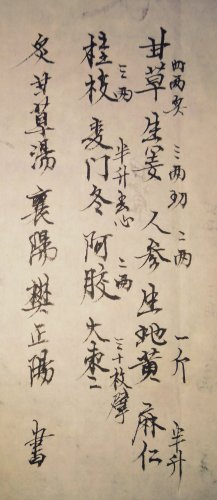 甘草四两炙生姜三两切人参二两生地黄一斤麻仁半升
桂枝三两麦门冬半升去心阿胶二两大枣三十枚擘
炙甘草湯 襄陽樊正陽 書